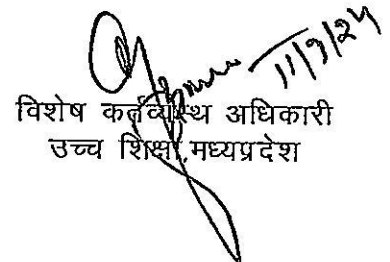 11/3/24
विशेष कर्तव्यस्थ अधिकारी
उच्च शिक्षा, मध्यप्रदेश